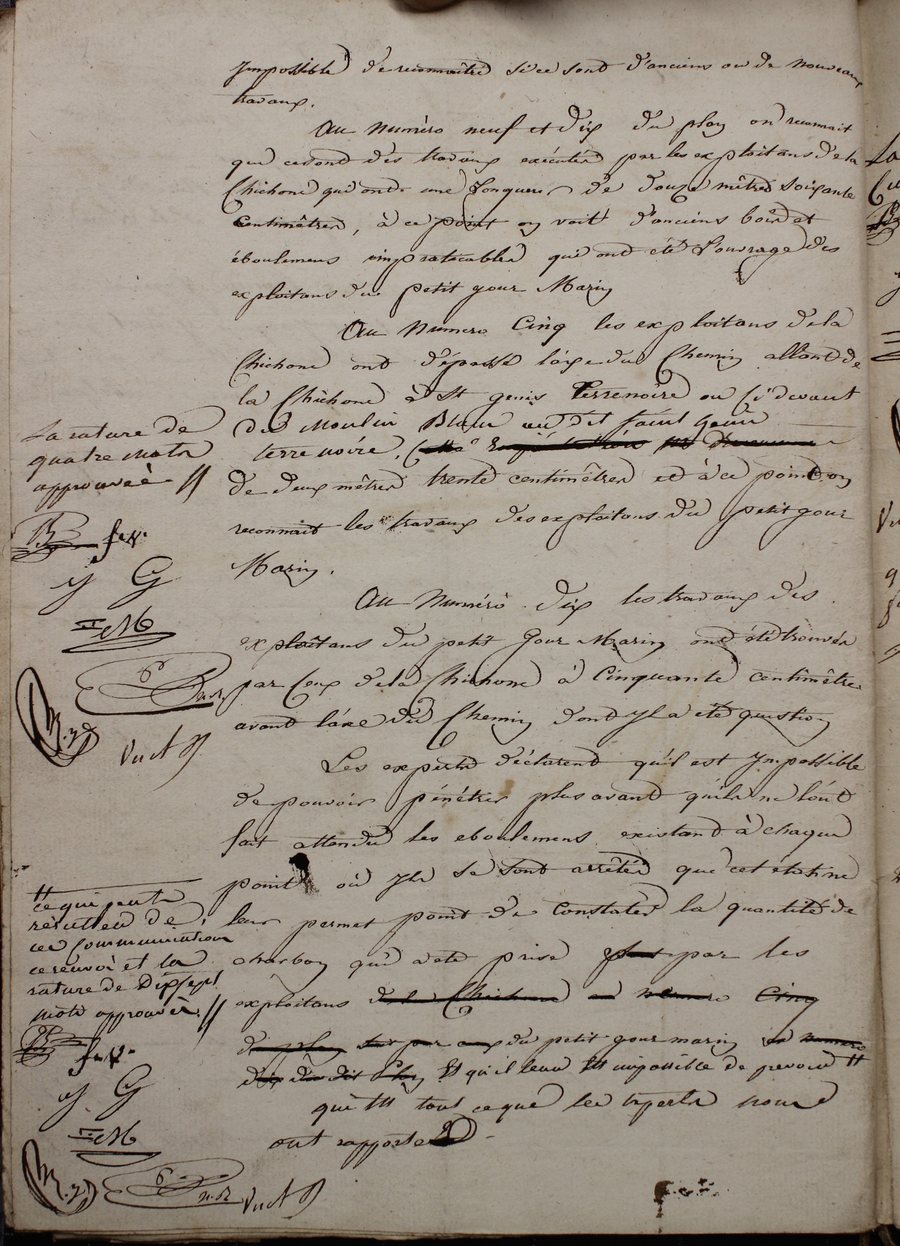 Impossible de reconnaitre si ce sont d'anciens ou de nouveaux
travaux.
Au Numéro neuf et dix du plan on reconnait
que ce sont des travaux exécutés par les exploitans de la
Chichone qui ont une longueur de douze mètres soixante
Centimètres, à ce point on voit d'anciens bois et
éboulemens impraticables qui ont été l'ouvrage des
exploitans du petit gour Marin
Au Numero Cinq les exploitans de la
Chichone ont dépassé l'axe du Chemin allant de
la Chichone à St genis Terrenoire ou ci devant
des Moulin Blanc au dit saint genis
terre noire,
de deux mètres trente centimètres et à ce point on
reconnait les travaux des exploitans du petit gour
Marin.
Au Numéro dix les travaux des
exploitans du petit gour Marin ont été trouvés
par Ceux de la Chichone à Cinquante centimètres
avant l'axe du Chemin dont Yl a été question
Les experts déclarent qu'il est Impossible
de pouvoir pénétrer plus avant qu'ils ne l'ont
fait attendu les eboulemens existant à chaque
point où Yls se sont arrêtés que cet état ne
leur permet point de Constater la quantité de
charbon qui a été prise plus par les
exploitans de la Chichone au numero Cinq
du plan du petit gour marin au numero
dix du dit plan Et qu'il leur est impossible de prevoir #
qui est tout ce que les experts nous
ont rapporté.
La rature de
quatre mots
approuvée //
f.x.
J G
M
B
n.R
M.y
Vu A
# ce qui peut
résulter de
ces Communications
ce renvoi et la
rature de Dixsept
mots approuvés //
f.x.
J G
M
M.y
n.R
Vu A